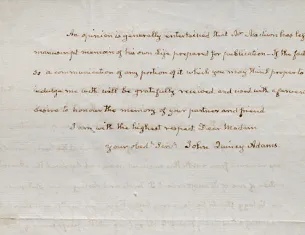 An opinion is generally entertained that Mr Madison has left
manuscript memoirs of his own Life prepared for publication—If the fact
so a communication of any portion of it which you may think proper to
indulge me with will be gratefully received and used with a
desire to honour the memory of your partner and friend
I am with the highest respect Dear Madam
your obedt Servt John Quincy Adams.